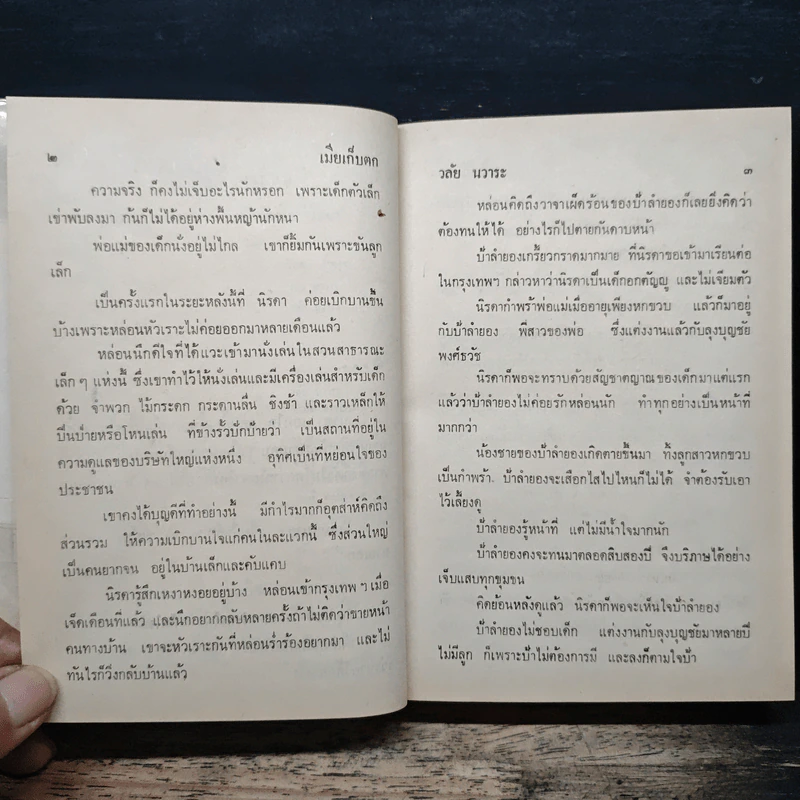 ๒ เมียเก็บตก
ความจริง ก็คงไม่เจ็บอะไรนักหรอก เพราะเด็กตัวเล็ก
เข่าพับลงมา ก้นก็ไม่ได้อยู่ห่างพื้นหญ้านักหนา
พ่อแม่ของเด็กนั่งอยู่ไม่ไกล เขาก็ยิ้มกันเพราะขันลูก
เล็ก
เป็นครั้งแรกในระยะหลังนี้ที่ นิรดา ค่อยเบิกบานขึ้น
บ้างเพราะหล่อนหัวเราะไม่ค่อยออกมาหลายเดือนแล้ว
หล่อนนึกดีใจที่ได้แวะเข้ามานั่งเล่นในสวนสาธารณะ
เล็ก ๆ แห่งนี้ ซึ่งเขาทำไว้ให้นั่งเล่นและมีเครื่องเล่นสำหรับเด็ก
ด้วย จำพวก ไม้กระดก กระดานลื่น ชิงช้า และราวเหล็กให้
ปีนป่ายหรือโหนเล่น ที่ข้างรั้วปักป้ายว่า เป็นสถานที่อยู่ใน
ความดูแลของบริษัทใหญ่แห่งหนึ่ง อุทิศเป็นที่หย่อนใจของ
ประชาชน
เขาคงได้บุญดีที่ทำอย่างนี้ มีกำไรมากก็อุตส่าห์คิดถึง
ส่วนรวม ให้ความเบิกบานใจแก่คนในละแวกนี้ ซึ่งส่วนใหญ่
เป็นคนยากจน อยู่ในบ้านเล็กและคับแคบ
นิรดารู้สึกเหงาหงอยอยู่บ้าง หล่อนเข้ากรุงเทพ ฯ เมื่อ
เจ็ดเดือนที่แล้ว และนึกอยากกลับหลายครั้งถ้าไม่ติดว่าขายหน้า
คนทางบ้าน เขาจะหัวเราะกันที่หล่อนร่ำร้องอยากมา และไม่
ทันไรก็วิ่งกลับบ้านแล้ว
วลัย นวาระ ๓
หล่อนคิดถึงวาจาเผ็ดร้อนของป้าลำยองก็เลยยิ่งคิดว่า
ต้องทนให้ได้ อย่างไรก็ไปตายกันดาบหน้า
ป้าลำยองเกรี้ยวกราดมากมาย ที่นิรดาขอเข้ามาเรียนต่อ
ในกรุงเทพฯ กล่าวหาว่านิรดาเป็นเด็กอกตัญญู และไม่เจียมตัว
นิรดากำพร้าพ่อแม่เมื่ออายุเพียงหกขวบ แล้วก็มาอยู่
กับป้าลำยอง พี่สาวของพ่อ ซึ่งแต่งงานแล้วกับลุงบุญชัย
พงศ์ธวัช
นิรดาก็พอจะทราบด้วยสัญชาตญาณของเด็กมาแต่แรก
แล้วว่าป้าลำยองไม่ค่อยรักหล่อนนัก ทำทุกอย่างเป็นหน้าที่
มากกว่า
น้องชายของป้าลำยองเกิดตายขึ้นมา ทิ้งลูกสาวหกขวบ
เป็นกำพร้า. ป้าลำยองจะเสือกไสไปไหนก็ไม่ได้ จำต้องรับเอา
ไว้เลี้ยงดู
ป้าลำยองรู้หน้าที่ แต่ไม่มีน้ำใจมากนัก
ป้าลำยองคงจะทนมาตลอดสิบสองปี จึงบริภาษได้อย่าง
เจ็บแสบทุกขุมขน
คิดย้อนหลังดูแล้ว นิรดาก็พอจะเห็นใจป้าลำยอง
ป้าลำยองไม่ชอบเด็ก แต่งงานกับลุงบุญชัยมาหลายปี
ไม่มีลูก ก็เพราะป้าไม่ต้องการมี และลงก็ตามใจป้า